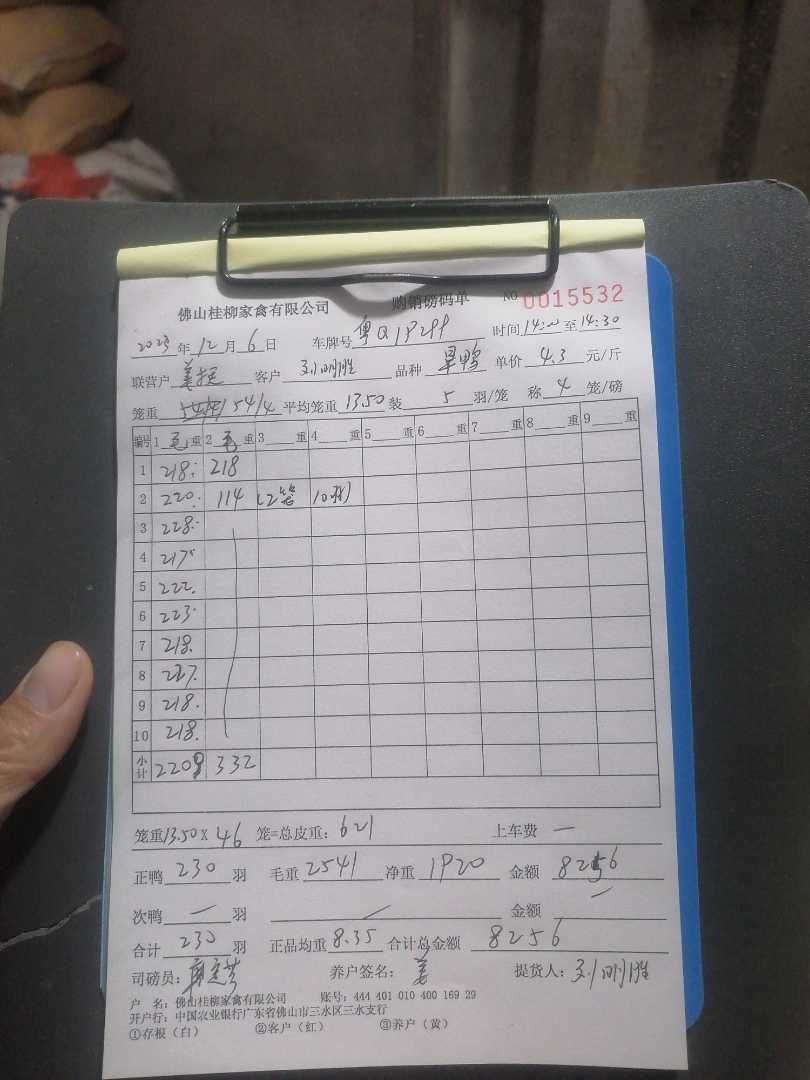 佛山桂柳家禽有限公司 购销磅码单 NO 0015532
2023年12月6日 车牌号 粤Q1P2 时间14:00至14:30
联营户 姜 客户 刘明胜 品种 旱鸭 单价 4.3 元/斤
笼重 54/4 平均笼重 13.50 装 5 羽/笼 称 4 笼/磅
编号 1 毛 重 2 毛 重 3 重 4 重 5 重 6 重 7 重 8 重 9 重
1 218 218
2 220 114 (2笼 10羽)
3 228
4 217
5 222
6 223
7 218
8 227
9 218
10 218
小计 2209 332
笼重13.50X 46 笼=总皮重: 621 上车费 —
正鸭 230 羽 毛重 2541 净重 1920 金额 8256
次鸭 — 羽 — 金额 —
合计 230 羽 正品均重 8.35 合计总金额 8256
司磅员: 养户签名: 姜 提货人: 刘明胜
户 名: 佛山桂柳家禽有限公司 账号: 444 401 010 400 169 29
开户行: 中国农业银行广东省佛山市三水区三水支行
①存根（白） ②客户（红） ③养户（黄）